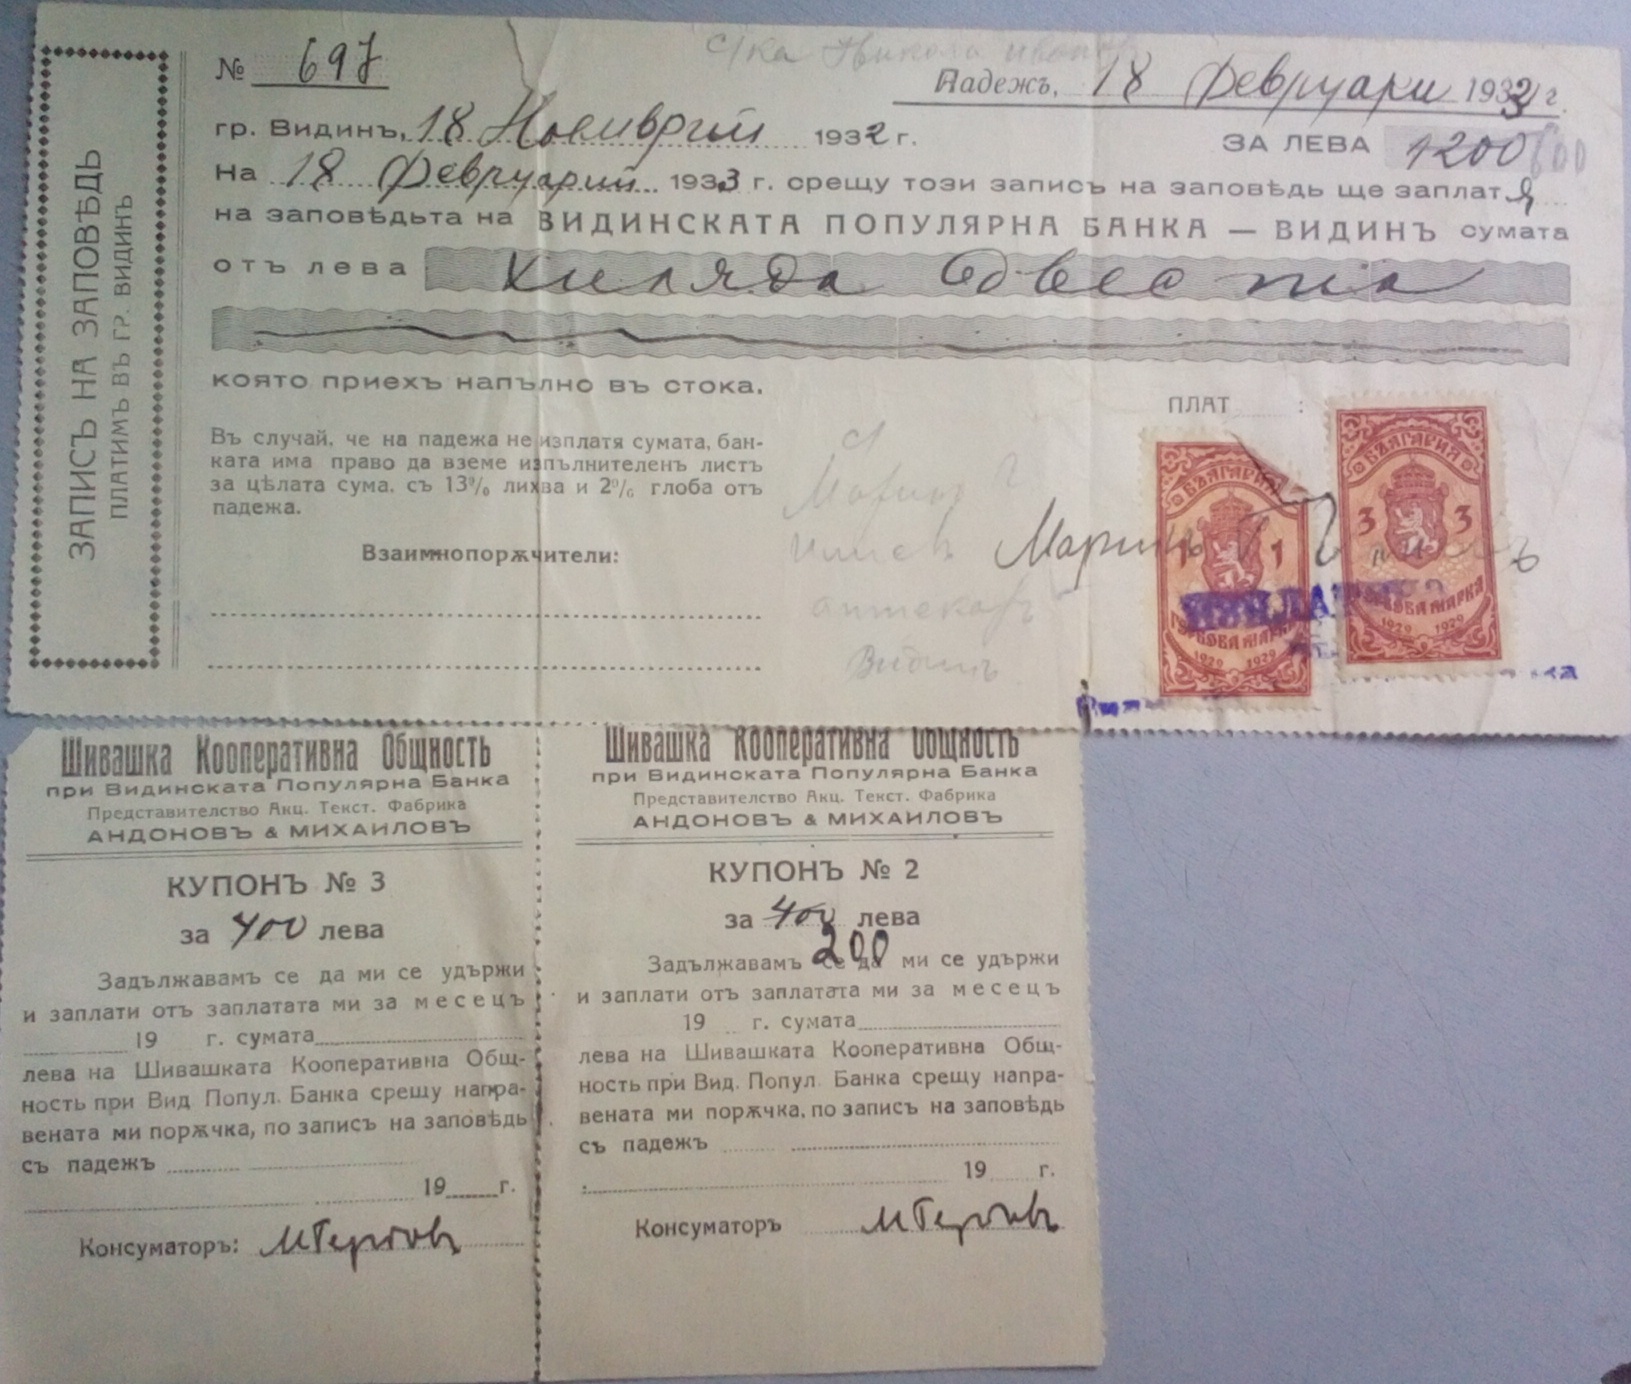 ЗАПИСЪ НА ЗАПОВѢДЬ
ПЛАТИМЪ ВЪ ГР. ВИДИНЪ
№ 697
Падежъ, 18 Февруари 1933 г.
гр. Видинъ, 18 Ноемврий 1932 г.
ЗА ЛЕВА 1200 600
На 18 Февруарий 1933 г. срещу този записъ на заповѣдь ще заплатя
на заповѣдьта на ВИДИНСКАТА ПОПУЛЯРНА БАНКА — ВИДИНЪ сумата
отъ лева Хиляда двеста
която приехъ напълно въ стока.
Въ случай, че на падежа не изплатя сумата, бан-
ката има право да вземе изпълнителенъ листъ
за цѣлата сума. съ 13% лихва и 2% глоба отъ
падежа.
Взаимнопорѫчители:
ПЛАТ :
Маринъ
аптекарь
Видинъ
Маринъ
БЪЛГАРИЯ
1 1
ГЕРБОВА МАРКА
1929 1929
БЪЛГАРИЯ
3 3
ГЕРБОВА МАРКА
1929 1929
Шивашка Кооперативна Общность
при Видинската Популярна Банка
Представителство Акц. Текст. Фабрика
АНДОНОВЪ & МИХАИЛОВЪ
КУПОНЪ № 3
за 400 лева
Задължавамъ се да ми се удържи
и заплати отъ заплатата ми за месецъ
19 г. сумата
лева на Шивашката Кооперативна Общ-
ность при Вид Попул. Банка срещу напра-
вената ми порѫчка, по записъ на заповѣдь
съ падежъ
19 г.
Консуматоръ:
Шивашка Кооперативна Общность
при Видинската Популярна Банка
Представителство Акц. Текст. Фабрика
АНДОНОВЪ & МИХАИЛОВЪ
КУПОНЪ № 2
за 400 лева
200
Задължавамъ се да ми се удържи
и заплати отъ заплатата ми за месецъ
19 г. сумата
лева на Шивашката Кооперативна Общ-
ность при Вид. Попул. Банка срещу напра-
вената ми порѫчка, по записъ на заповѣдь
съ падежъ
19 г.
Консуматоръ